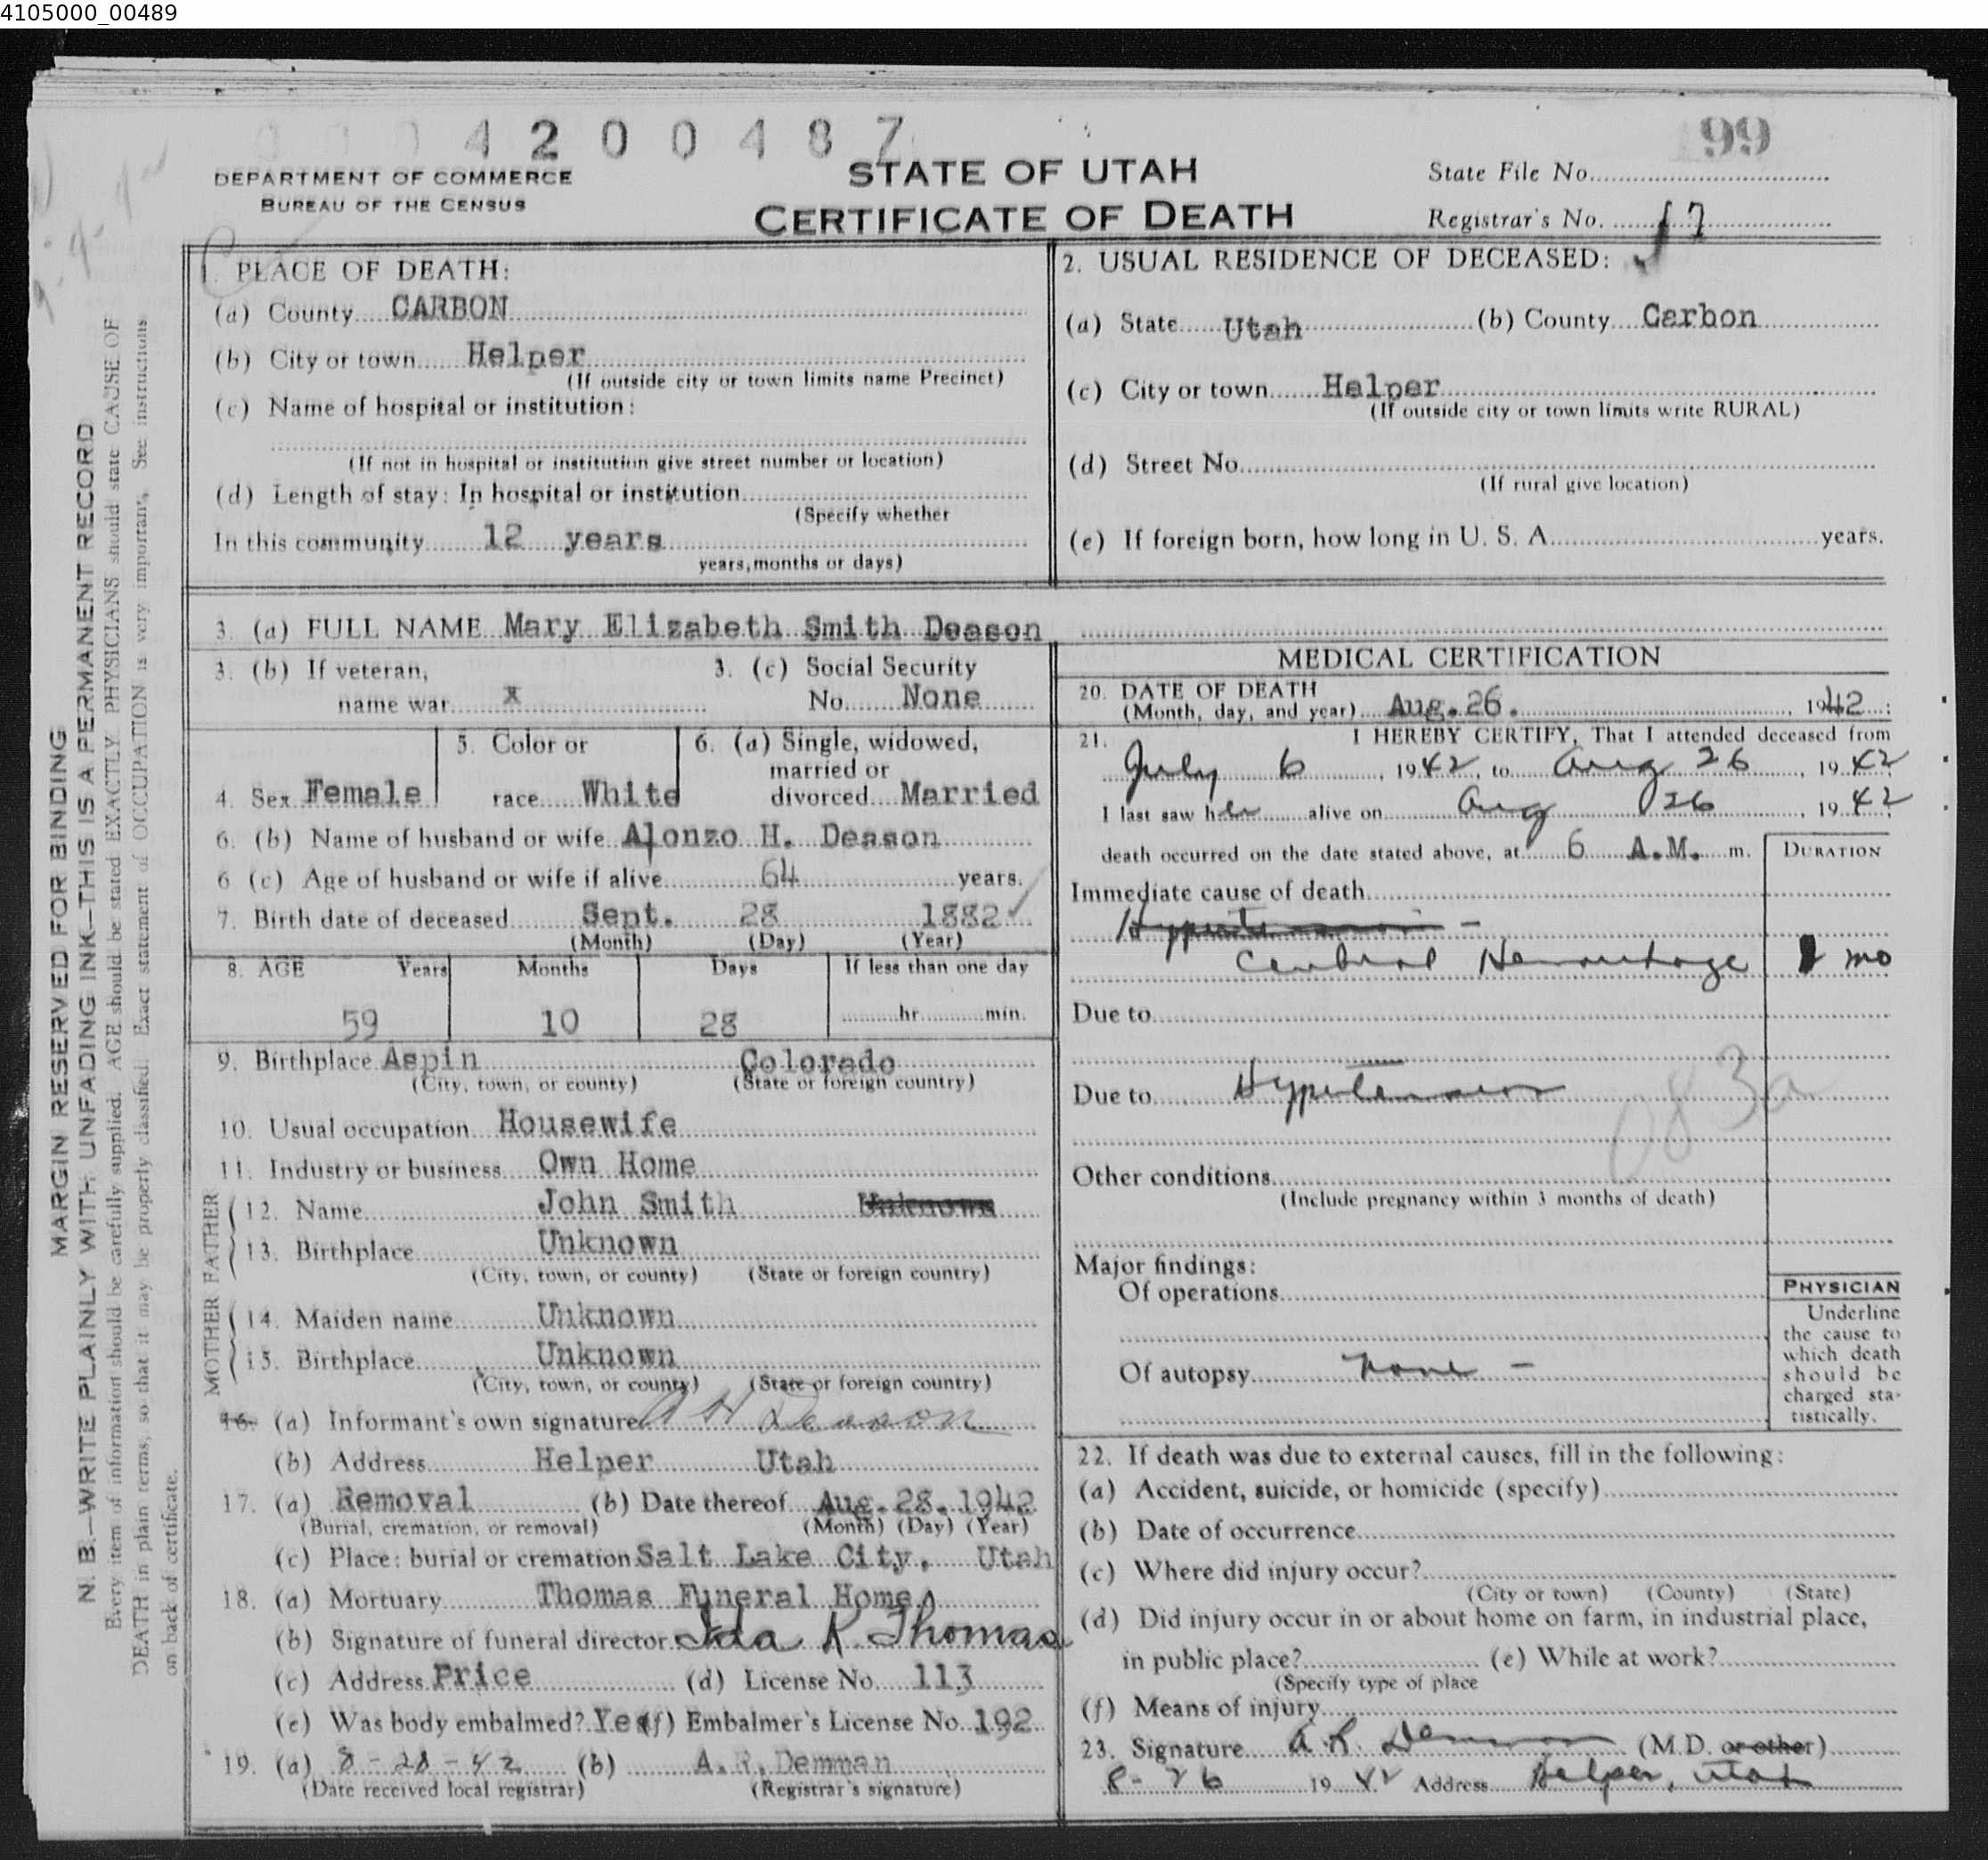 4105000_00489
4 2 0 0 4 8 7
99
DEPARTMENT OF COMMERCE
BUREAU OF THE CENSUS
STATE OF UTAH
CERTIFICATE OF DEATH
State File No.
Registrar's No. 17
MARGIN RESERVED FOR BINDING
N. B.—WRITE PLAINLY WITH UNFADING INK—THIS IS A PERMANENT RECORD
Every item of information should be carefully supplied. AGE should be stated EXACTLY. PHYSICIANS should state CAUSE OF
DEATH in plain terms, so that it may be properly classified. Exact statement of OCCUPATION is very important. See instructions
on back of certificate.
1. PLACE OF DEATH:
(a) County CARBON
(b) City or town Helper
(If outside city or town limits name Precinct)
(c) Name of hospital or institution:
(If not in hospital or institution give street number or location)
(d) Length of stay: In hospital or institution
(Specify whether
In this community 12 years
years, months or days)
2. USUAL RESIDENCE OF DECEASED:
(a) State Utah (b) County Carbon
(c) City or town Helper
(If outside city or town limits write RURAL)
(d) Street No.
(If rural give location)
(e) If foreign born, how long in U. S. A. years.
3. (a) FULL NAME Mary Elizabeth Smith Deason
3. (b) If veteran,
name war x
3. (c) Social Security
No. None
4. Sex Female
5. Color or
race White
6. (a) Single, widowed,
married or
divorced Married
6. (b) Name of husband or wife Alonzo H. Deason
6 (c) Age of husband or wife if alive 64 years.
7. Birth date of deceased Sept. 28 1882
(Month) (Day) (Year)
8. AGE Years Months Days If less than one day
59 10 28 hr. min.
9. Birthplace Aspin Colorado
(City, town, or county) (State or foreign country)
10. Usual occupation Housewife
11. Industry or business Own Home
FATHER
12. Name John Smith Unknown
13. Birthplace Unknown
(City, town, or county) (State or foreign country)
MOTHER
14. Maiden name Unknown
15. Birthplace Unknown
(City, town, or county) (State or foreign country)
16. (a) Informant's own signature A H Deason
(b) Address Helper Utah
17. (a) Removal (b) Date thereof Aug. 28. 1942
(Burial, cremation, or removal) (Month) (Day) (Year)
(c) Place: burial or cremation Salt Lake City, Utah
18. (a) Mortuary Thomas Funeral Home
(b) Signature of funeral director Ida K Thomas
(c) Address Price (d) License No. 113
(e) Was body embalmed? Yes (f) Embalmer's License No. 192
19. (a) 8-28-42 (b) A. R. Demman
(Date received local registrar) (Registrar's signature)
MEDICAL CERTIFICATION
20. DATE OF DEATH
(Month, day, and year) Aug. 26. 1942
21. I HEREBY CERTIFY, That I attended deceased from
July 6, 1942, to Aug 26, 1942
I last saw her alive on Aug 26, 1942
death occurred on the date stated above, at 6 A.M. m.
DURATION
Immediate cause of death
Hypertension -
Cerebral Hemorrhage mo
Due to
Due to Hypertension
083a
Other conditions
(Include pregnancy within 3 months of death)
Major findings:
Of operations
Of autopsy none -
PHYSICIAN
Underline
the cause to
which death
should be
charged sta-
tistically.
22. If death was due to external causes, fill in the following:
(a) Accident, suicide, or homicide (specify)
(b) Date of occurrence
(c) Where did injury occur?
(City or town) (County) (State)
(d) Did injury occur in or about home on farm, in industrial place,
in public place? (e) While at work?
(Specify type of place
(f) Means of injury
23. Signature A. R. Demman (M.D. or other)
8-26 1942 Address Helper, Utah